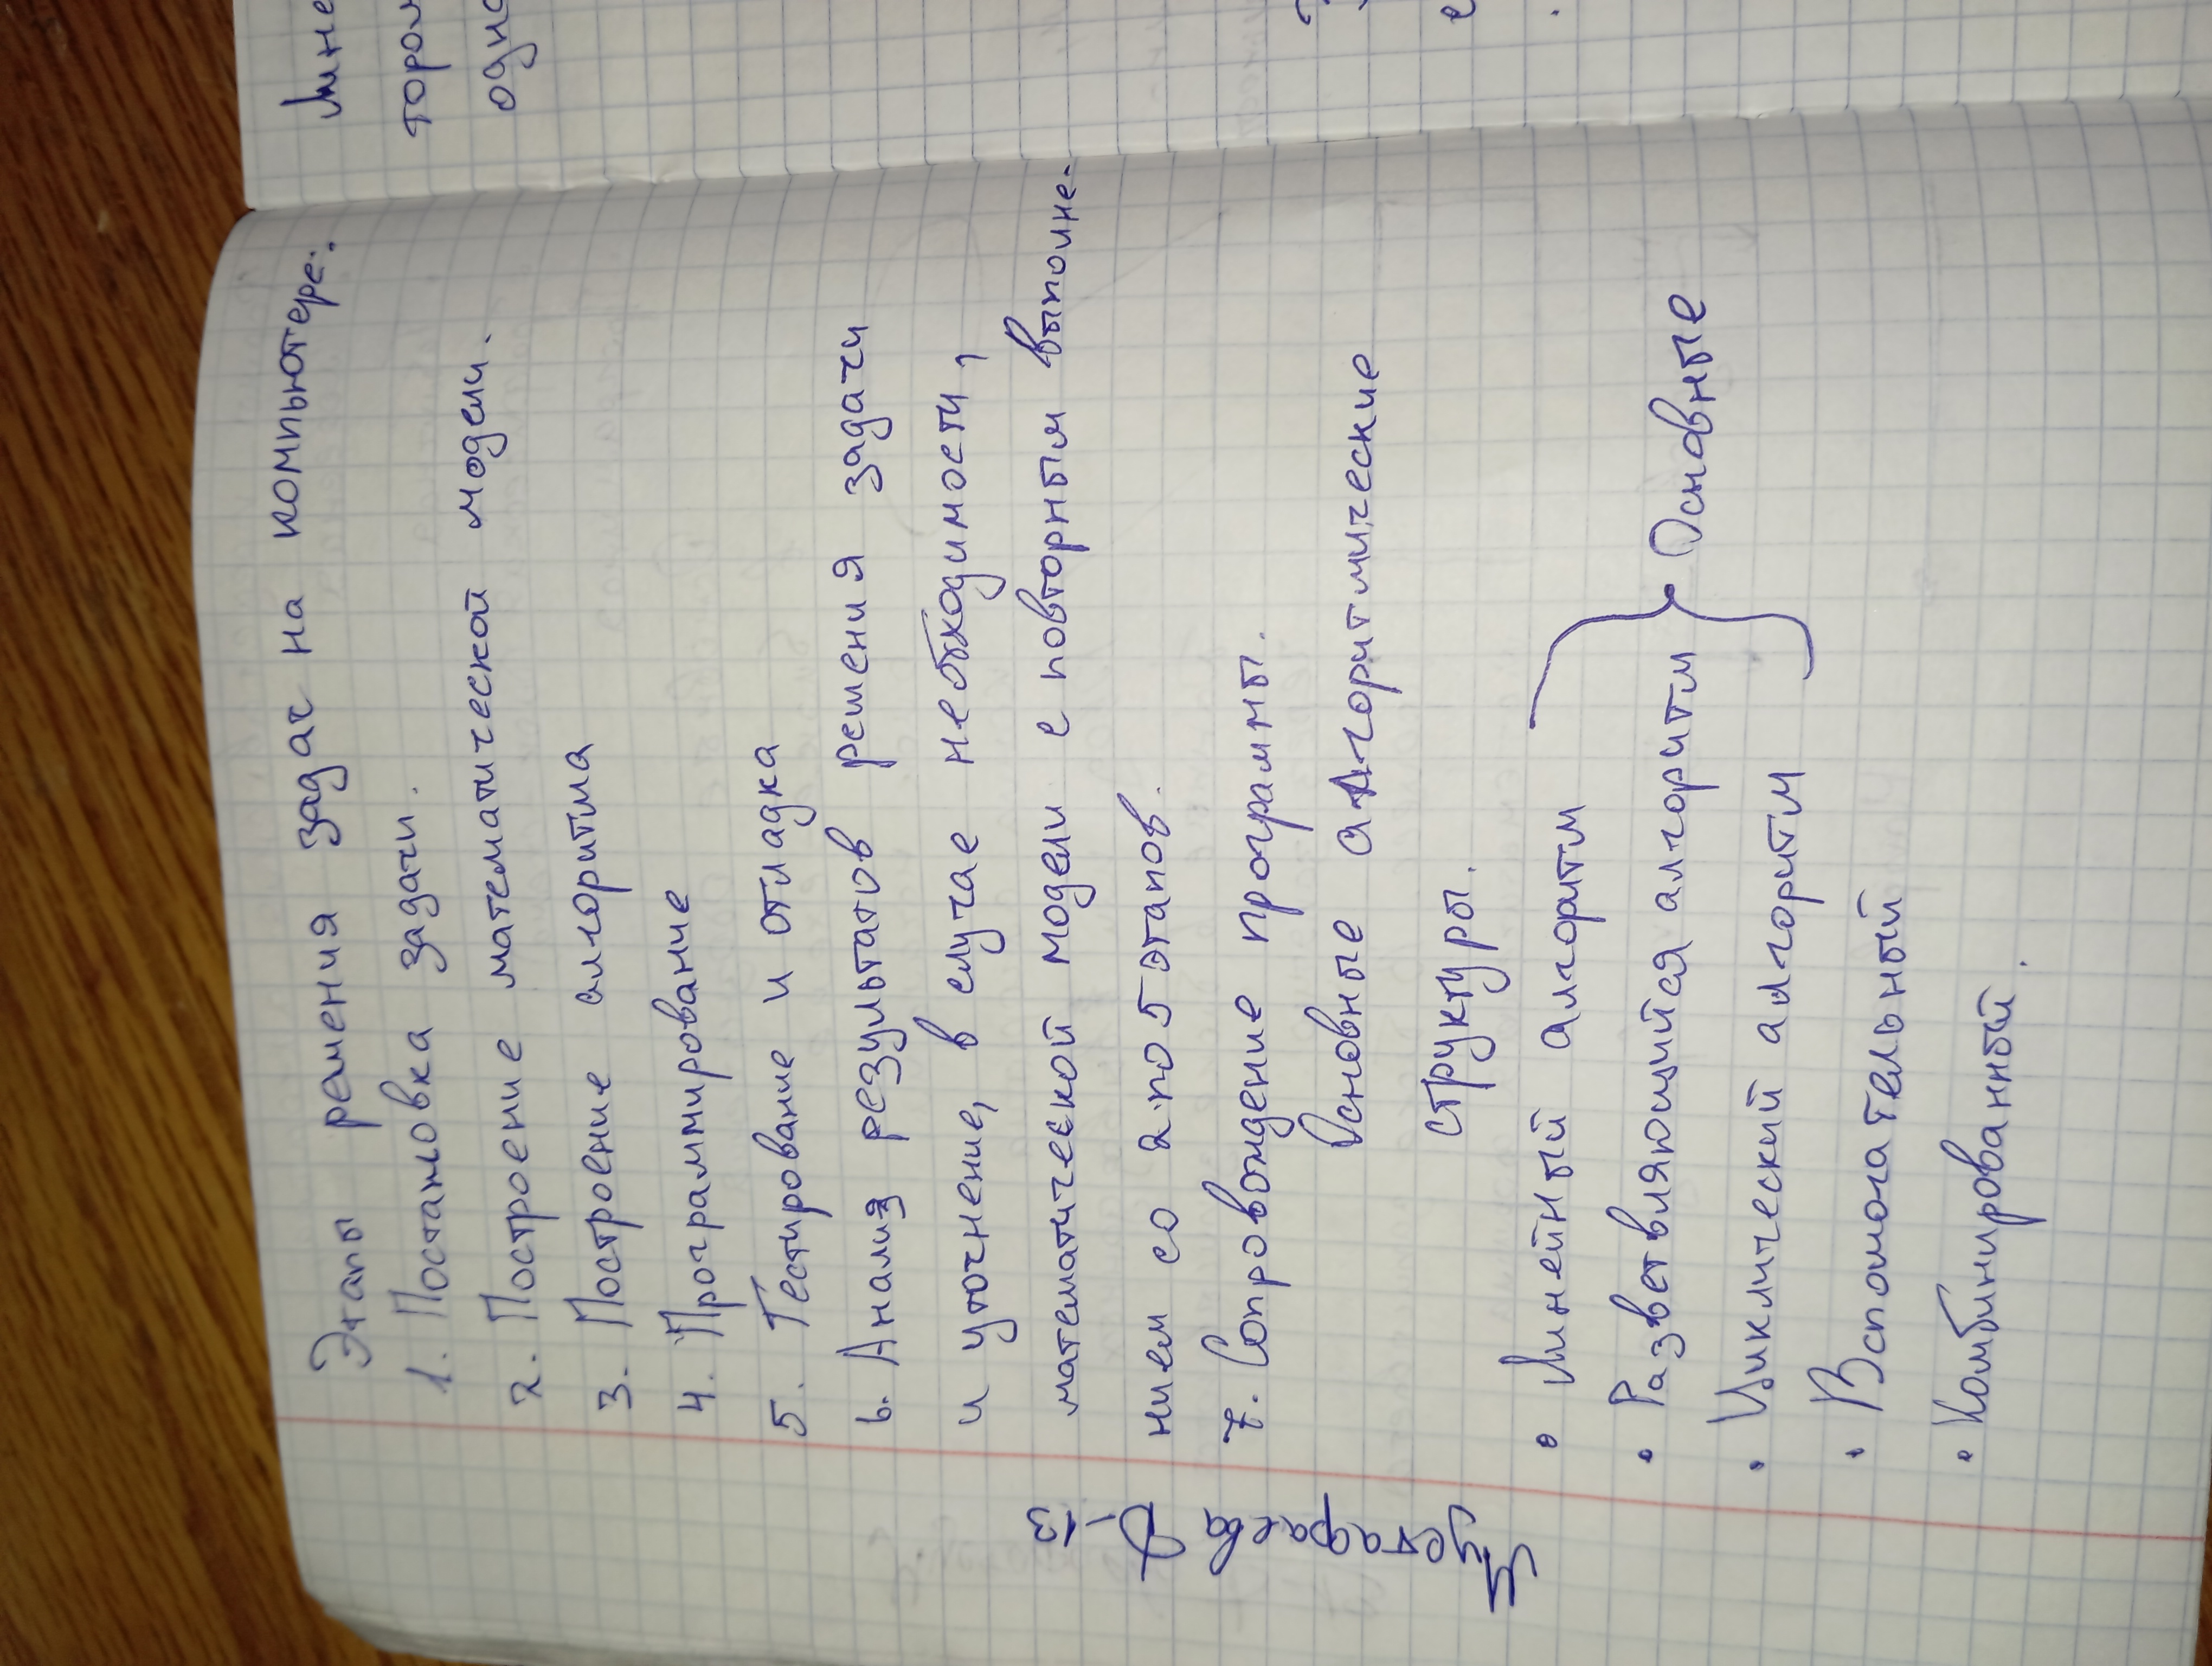 Этапы решения задач на компьютере:
1. Постановка задачи.
2. Построение математической модели.
3. Построение алгоритма
4. Программирование
5. Тестирование и отладка
6. Анализ результатов решения задачи
и уточнение, в случае необходимости,
математической модели с повторным выполне-
нием со 2 по 5 этапов.
7. Сопровождение программы.
Основные алгоритмические
структуры.
• Линейный алгоритм
• Разветвляющийся алгоритм Основные
• Циклический алгоритм
• Вспомогательный
• Комбинированный.
Лине
торол
одно